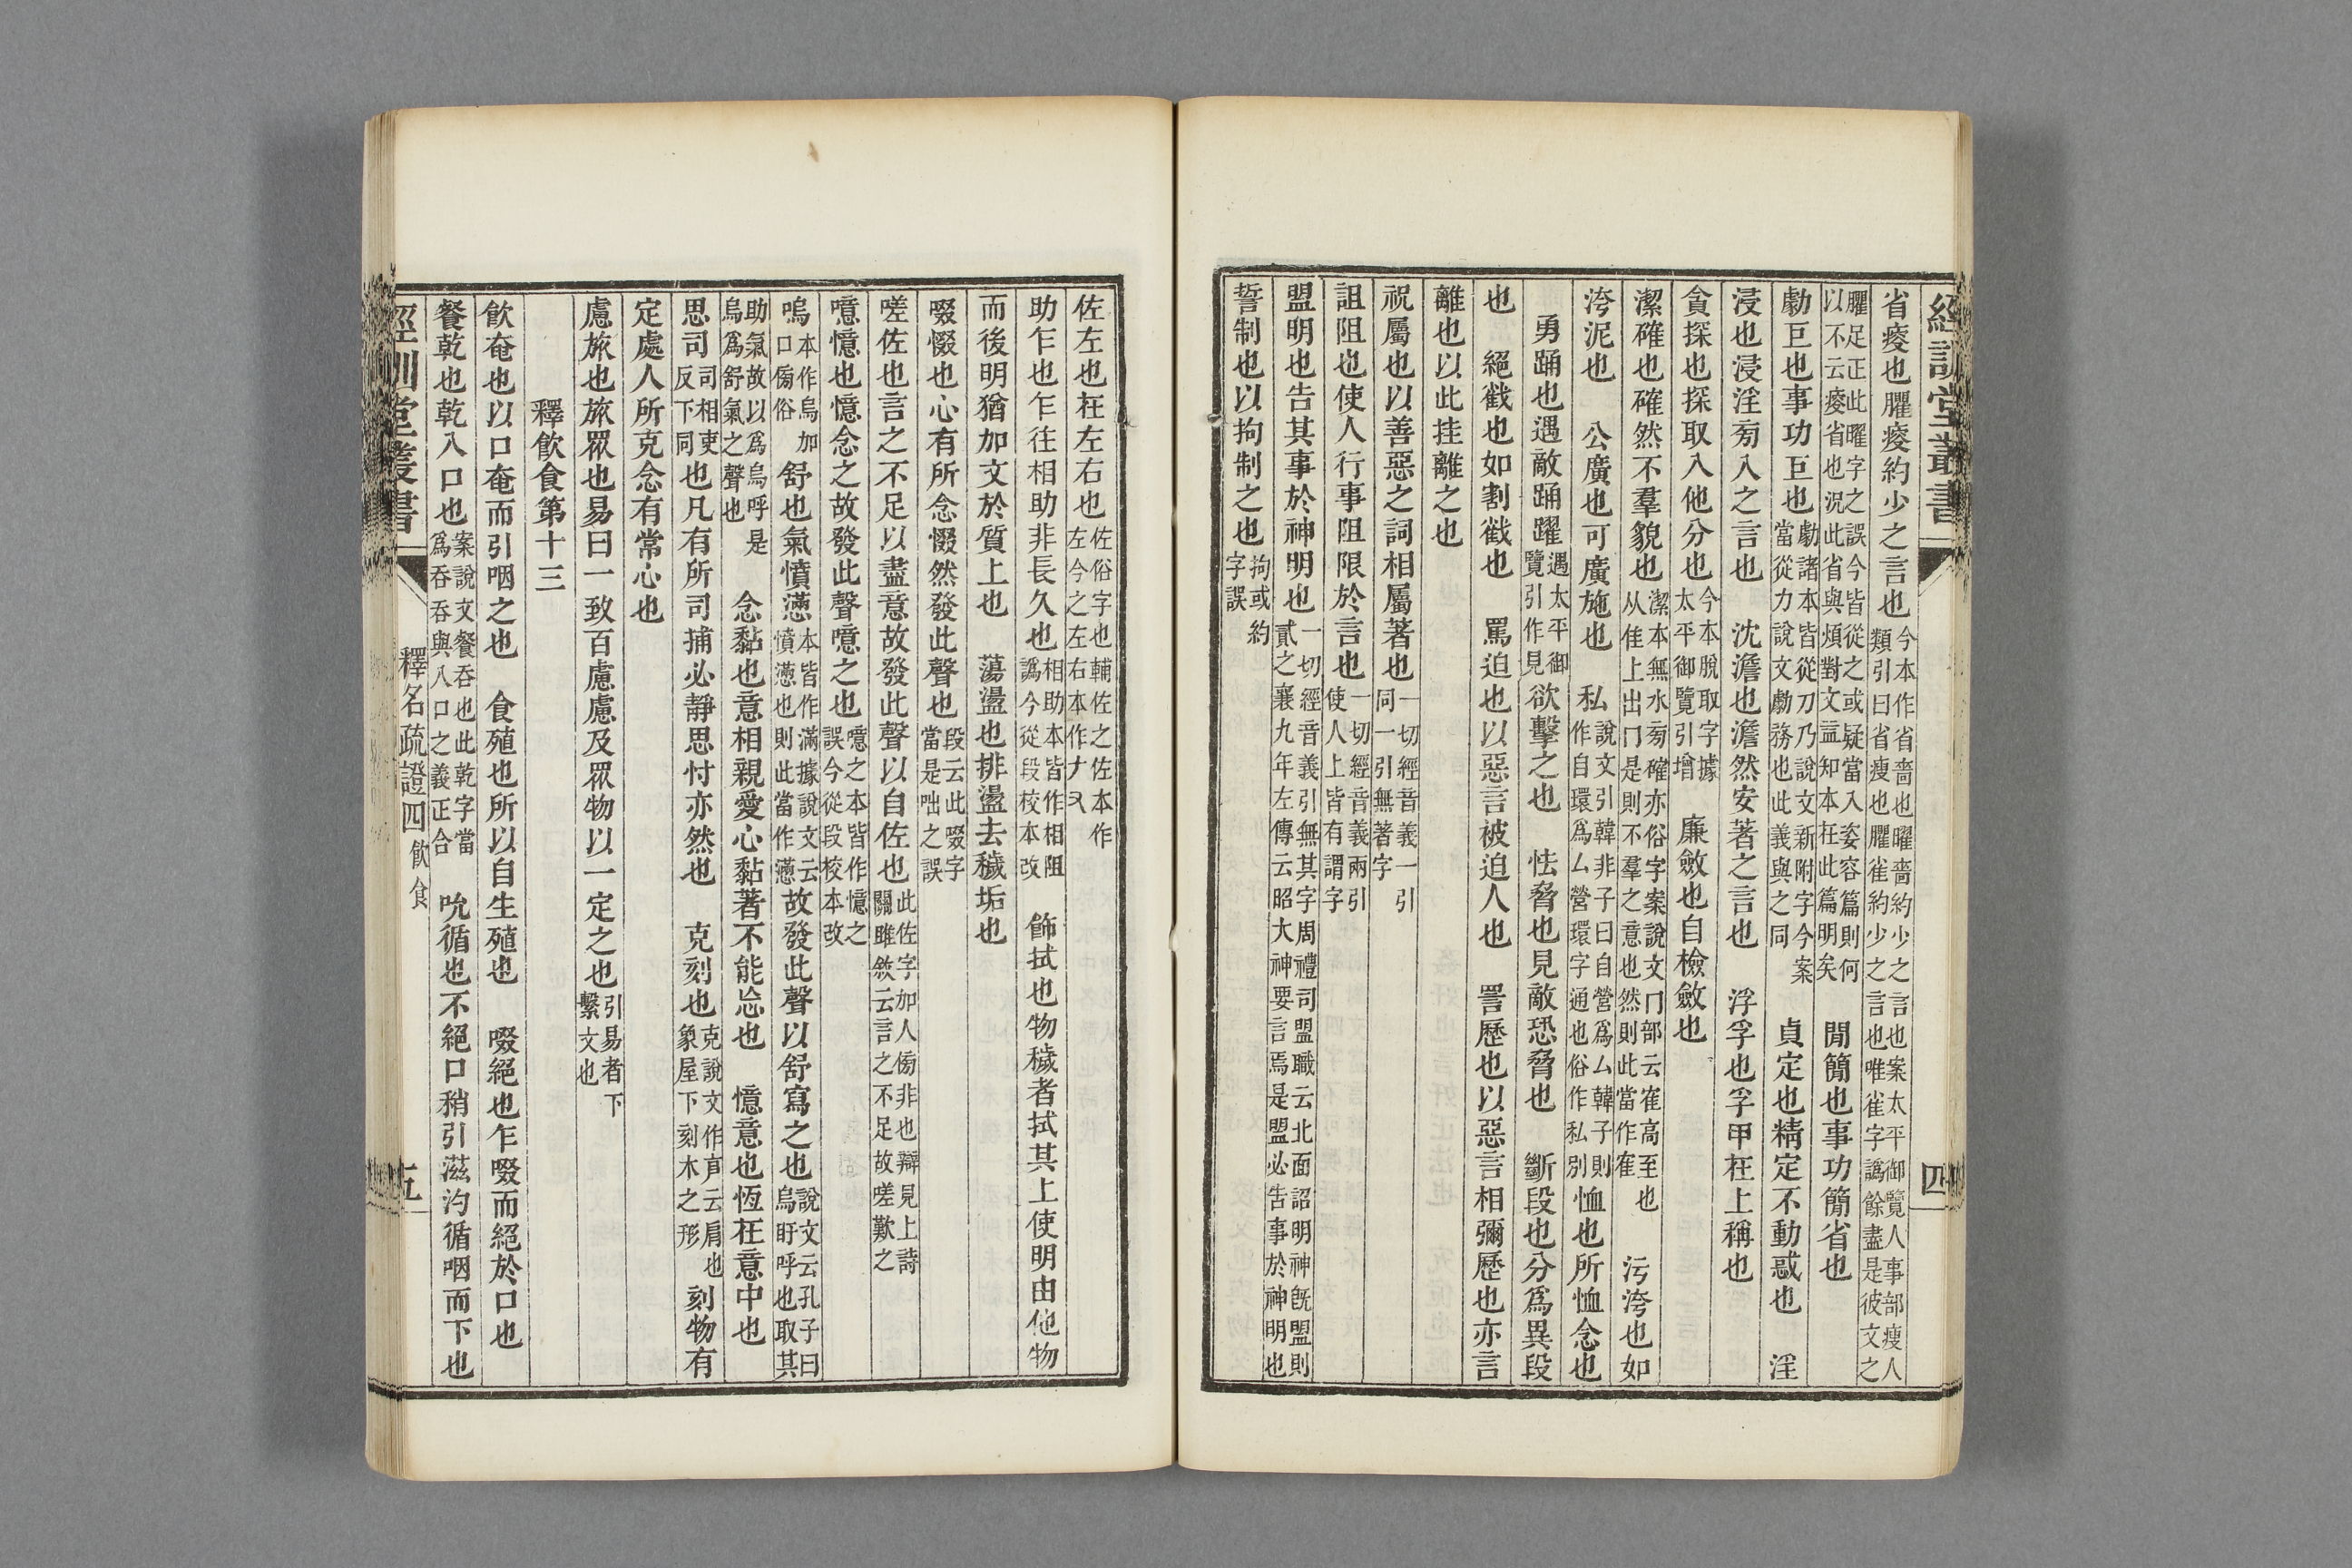 經訓堂叢書
四
省瘦也臞瘦約少之言也今本作省嗇也曜嗇約少之言也案太平御覽人事部瘦人類引曰省瘦也臞雀約少之言也唯雀字譌餘盡是彼文之
臞足正此曜字之誤今皆從之或疑當入姿容篇則何以不云瘦省也況此省與煩對文㠭知本在此篇明矣　閒簡也事功簡省也
勮巨也事功巨也勮諸本皆從刀乃說文新附字今案當從力說文勮務也此義與之同　貞定也精定不動惑也　淫
浸也浸淫㫄入之言也　沈澹也澹然安著之言也　浮孚也孚甲在上稱也
貪探也探取入他分也今本脫取字據太平御覽引增　廉斂也自檢斂也
潔確也確然不羣貌也潔本無水㫄確亦俗字案說文冂部云隺高至也从隹上出冂是則不羣之意也然則此當作隺　污洿也如
洿泥也　公廣也可廣施也　私說文引韓非子曰自營爲厶韓子則作自環爲厶營環字通也俗作私別恤也所恤念也
勇踊也遇敵踊躍遇太平御覽引作見欲擊之也　怯脅也見敵恐脅也　斷段也分爲異段
也　絕截也如割截也　罵迫也以惡言被迫人也　詈歷也以惡言相彌歷也亦言
離也以此挂離之也
祝屬也以善惡之詞相屬著也一切經音義一引同一引無著字
詛阻也使人行事阻限於言也一切經音義兩引使人上皆有謂字
盟明也告其事於神明也一切經音義引無其字周禮司盟職云北面詔明神旣盟則貳之襄九年左傳云昭大神要言焉是盟必告事於神明也
誓制也以拘制之也拘或約字誤
佐左也在左右也佐俗字也輔佐之佐本作左今之左右本作𠂇又
助乍也乍往相助非長久也相助本皆作相阻譌今從段校本改　飾拭也物穢者拭其上使明由他物
而後明猶加文於質上也　蕩盪也排盪去穢垢也
啜惙也心有所念惙然發此聲也段云此啜字當是咄之誤
嗟佐也言之不足以盡意故發此聲以自佐也此佐字加人㑄非也辯見上詩關雎敘云言之不足故嗟歎之
噫憶也憶念之故發此聲噫之也噫之本皆作憶之誤今從段校本改
嗚本作烏加口㑄俗舒也氣憤懣本皆作滿據說文云憤懣也則此當作懣故發此聲以舒寫之也說文云孔子曰烏盱呼也取其
助氣故以爲烏呼是烏爲舒氣之聲也　念黏也意相親愛心黏著不能忘也　憶意也恆在意中也
思司司相吏反下同也凡有所司捕必靜思忖亦然也　克刻也克說文作㔾云肩也象屋下刻木之形　刻物有
定處人所克念有常心也
慮旅也旅眾也易曰一致百慮慮及眾物以一定之也引易者下繫文也
釋飲食第十三
飲奄也以口奄而引咽之也　食殖也所以自生殖也　啜絕也乍啜而絕於口也
餐乾也乾入口也案說文餐吞也此乾字當爲吞吞與入口之義正合　吮循也不絕口稍引滋汋循咽而下也
經訓堂叢書
釋名疏證四飲食
五